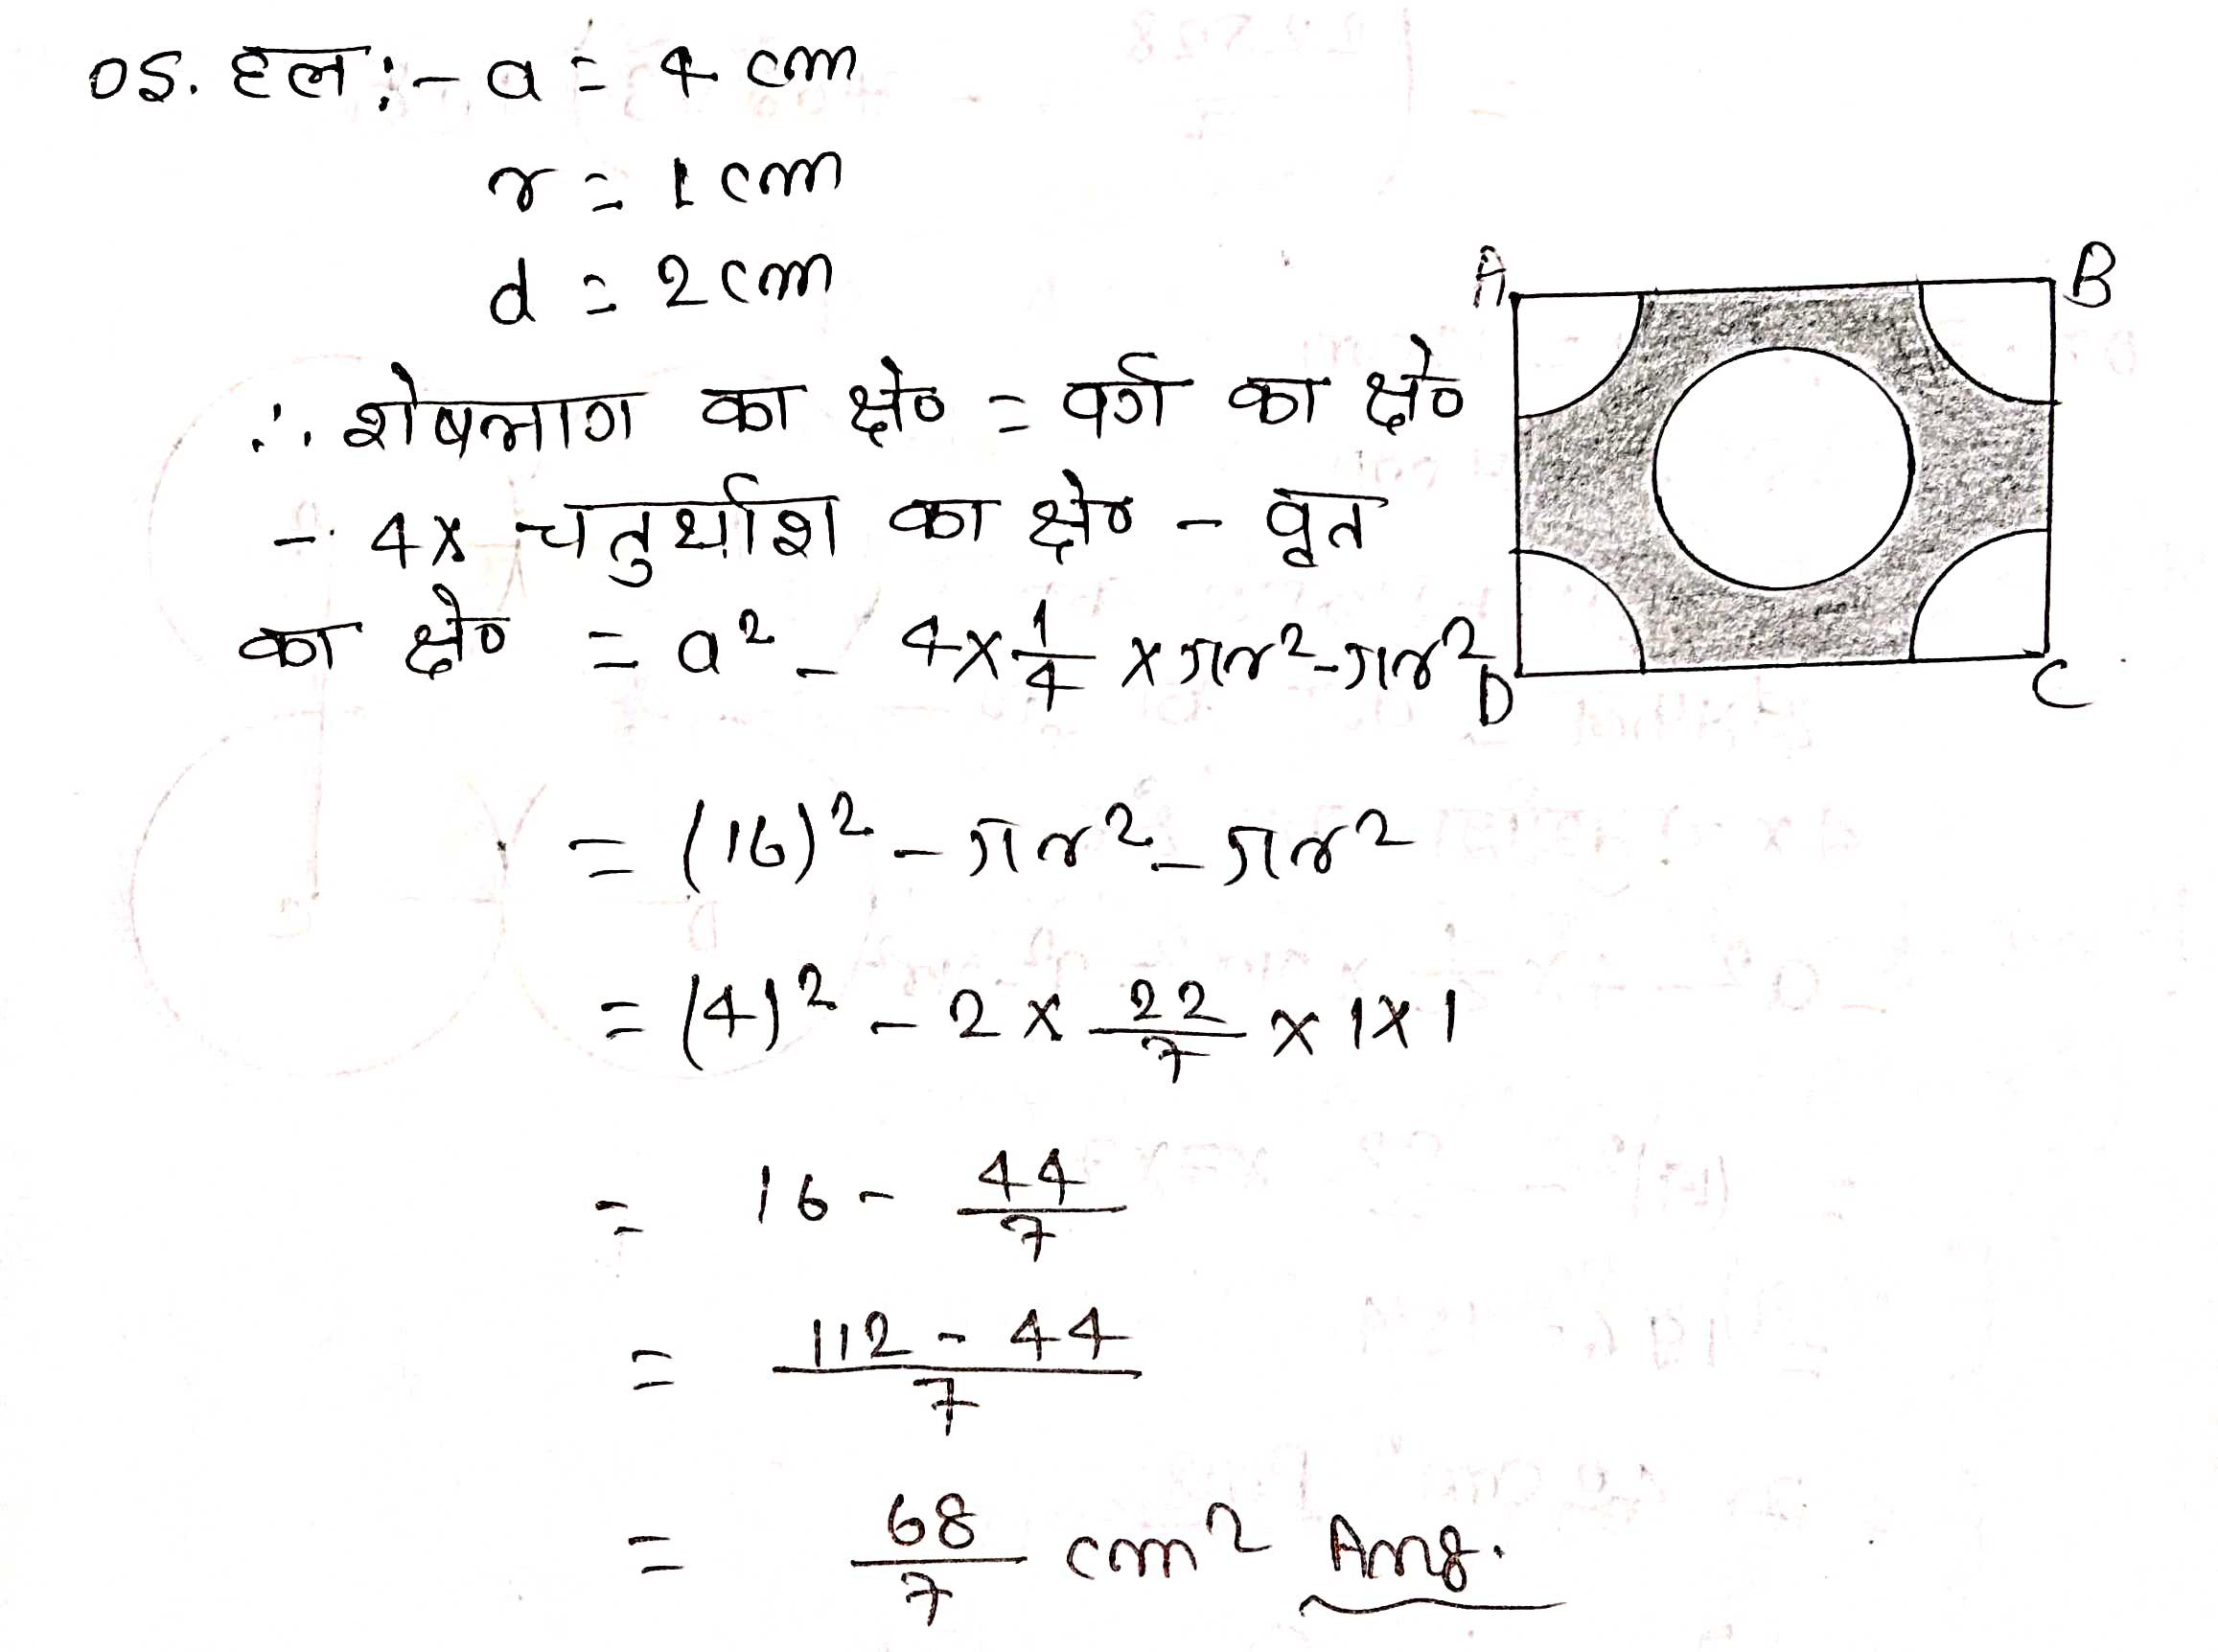 05. हल :- a = 4 cm
r = 1 cm
d = 2 cm
A B
∴ शेषभाग का क्षे० = वर्ग का क्षे०
- 4x चतुर्थाश का क्षे० - वृत
का क्षे० = a² - 4 × 1/4 × πr² - πr²
D C
= (16)² - πr² - πr²
= (4)² - 2 × 22/7 × 1×1
= 16 - 44/7
= 112 - 44 / 7
= 68/7 cm² Ans.